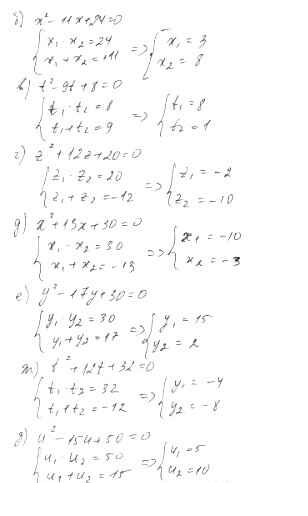 б) x² - 11x + 24 = 0
{ x₁ · x₂ = 24
{ x₁ + x₂ = 11 => { x₁ = 3
{ x₂ = 8
в) t² - 9t + 8 = 0
{ t₁ · t₂ = 8
{ t₁ + t₂ = 9 => { t₁ = 8
{ t₂ = 1
г) z² + 12z + 20 = 0
{ z₁ · z₂ = 20
{ z₁ + z₂ = -12 => { z₁ = -2
{ z₂ = -10
д) x² + 13x + 30 = 0
{ x₁ · x₂ = 30
{ x₁ + x₂ = -13 => { x₁ = -10
{ x₂ = -3
е) y² - 17y + 30 = 0
{ y₁ · y₂ = 30
{ y₁ + y₂ = 17 => { y₁ = 15
{ y₂ = 2
ж) t² + 12t + 32 = 0
{ t₁ · t₂ = 32
{ t₁ + t₂ = -12 => { y₁ = -4
{ y₂ = -8
з) u² - 15u + 50 = 0
{ u₁ · u₂ = 50
{ u₁ + u₂ = 15 => { u₁ = 5
{ u₂ = 10